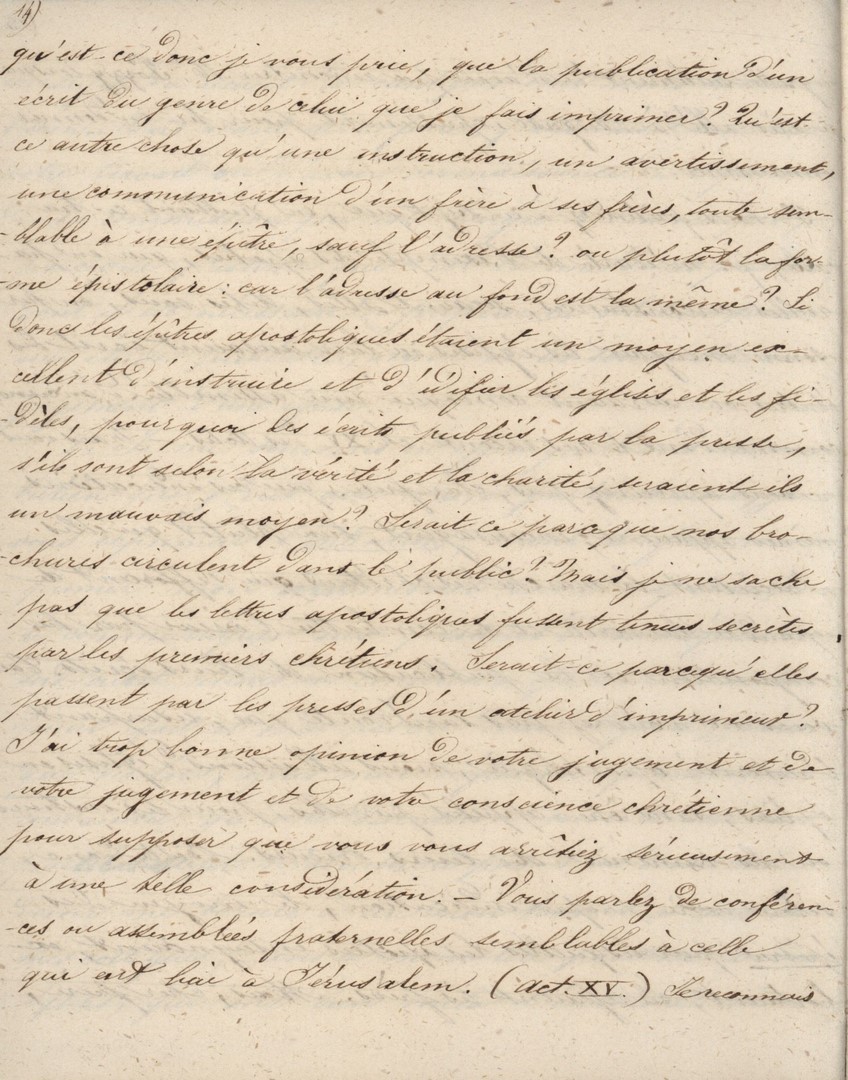 14)
qu'est-ce donc je vous prie, que la publication d'un
écrit du genre de celui que je fais imprimer? Qu'est-
ce autre chose qu'une instruction, un avertissement,
une communication d'un frère à ses frères, toute sem-
-blable à une épître, sauf l'adresse? ou plutôt la for-
-me épistolaire: car l'adresse au fond est la même? Si
donc les épîtres apostoliques étaient un moyen ex-
cellent d'instruire et d'édifier les églises et les fi-
-dèles, pourquoi des écrits publiés par la presse,
s'ils sont selon la vérité et la charité, seraient-ils
un mauvais moyen? Serait ce parceque nos bro-
-chures circulent dans le public? Mais je ne sache
pas que les lettres apostoliques fussent tenues secrètes
par les premiers chrétiens. Serait-ce parcequ'elles
passent par les presses d'un atelier d'imprimeur?
J'ai trop bonne opinion de votre jugement et de
votre jugement et de votre conscience chrétienne
pour supposer que vous vous arrêtiez sérieusement
à une telle considération. – Vous parlez de conféren-
-ces ou assemblées fraternelles semblables à celle
qui eut lieu à Jérusalem. (act. XV.) Je reconnais